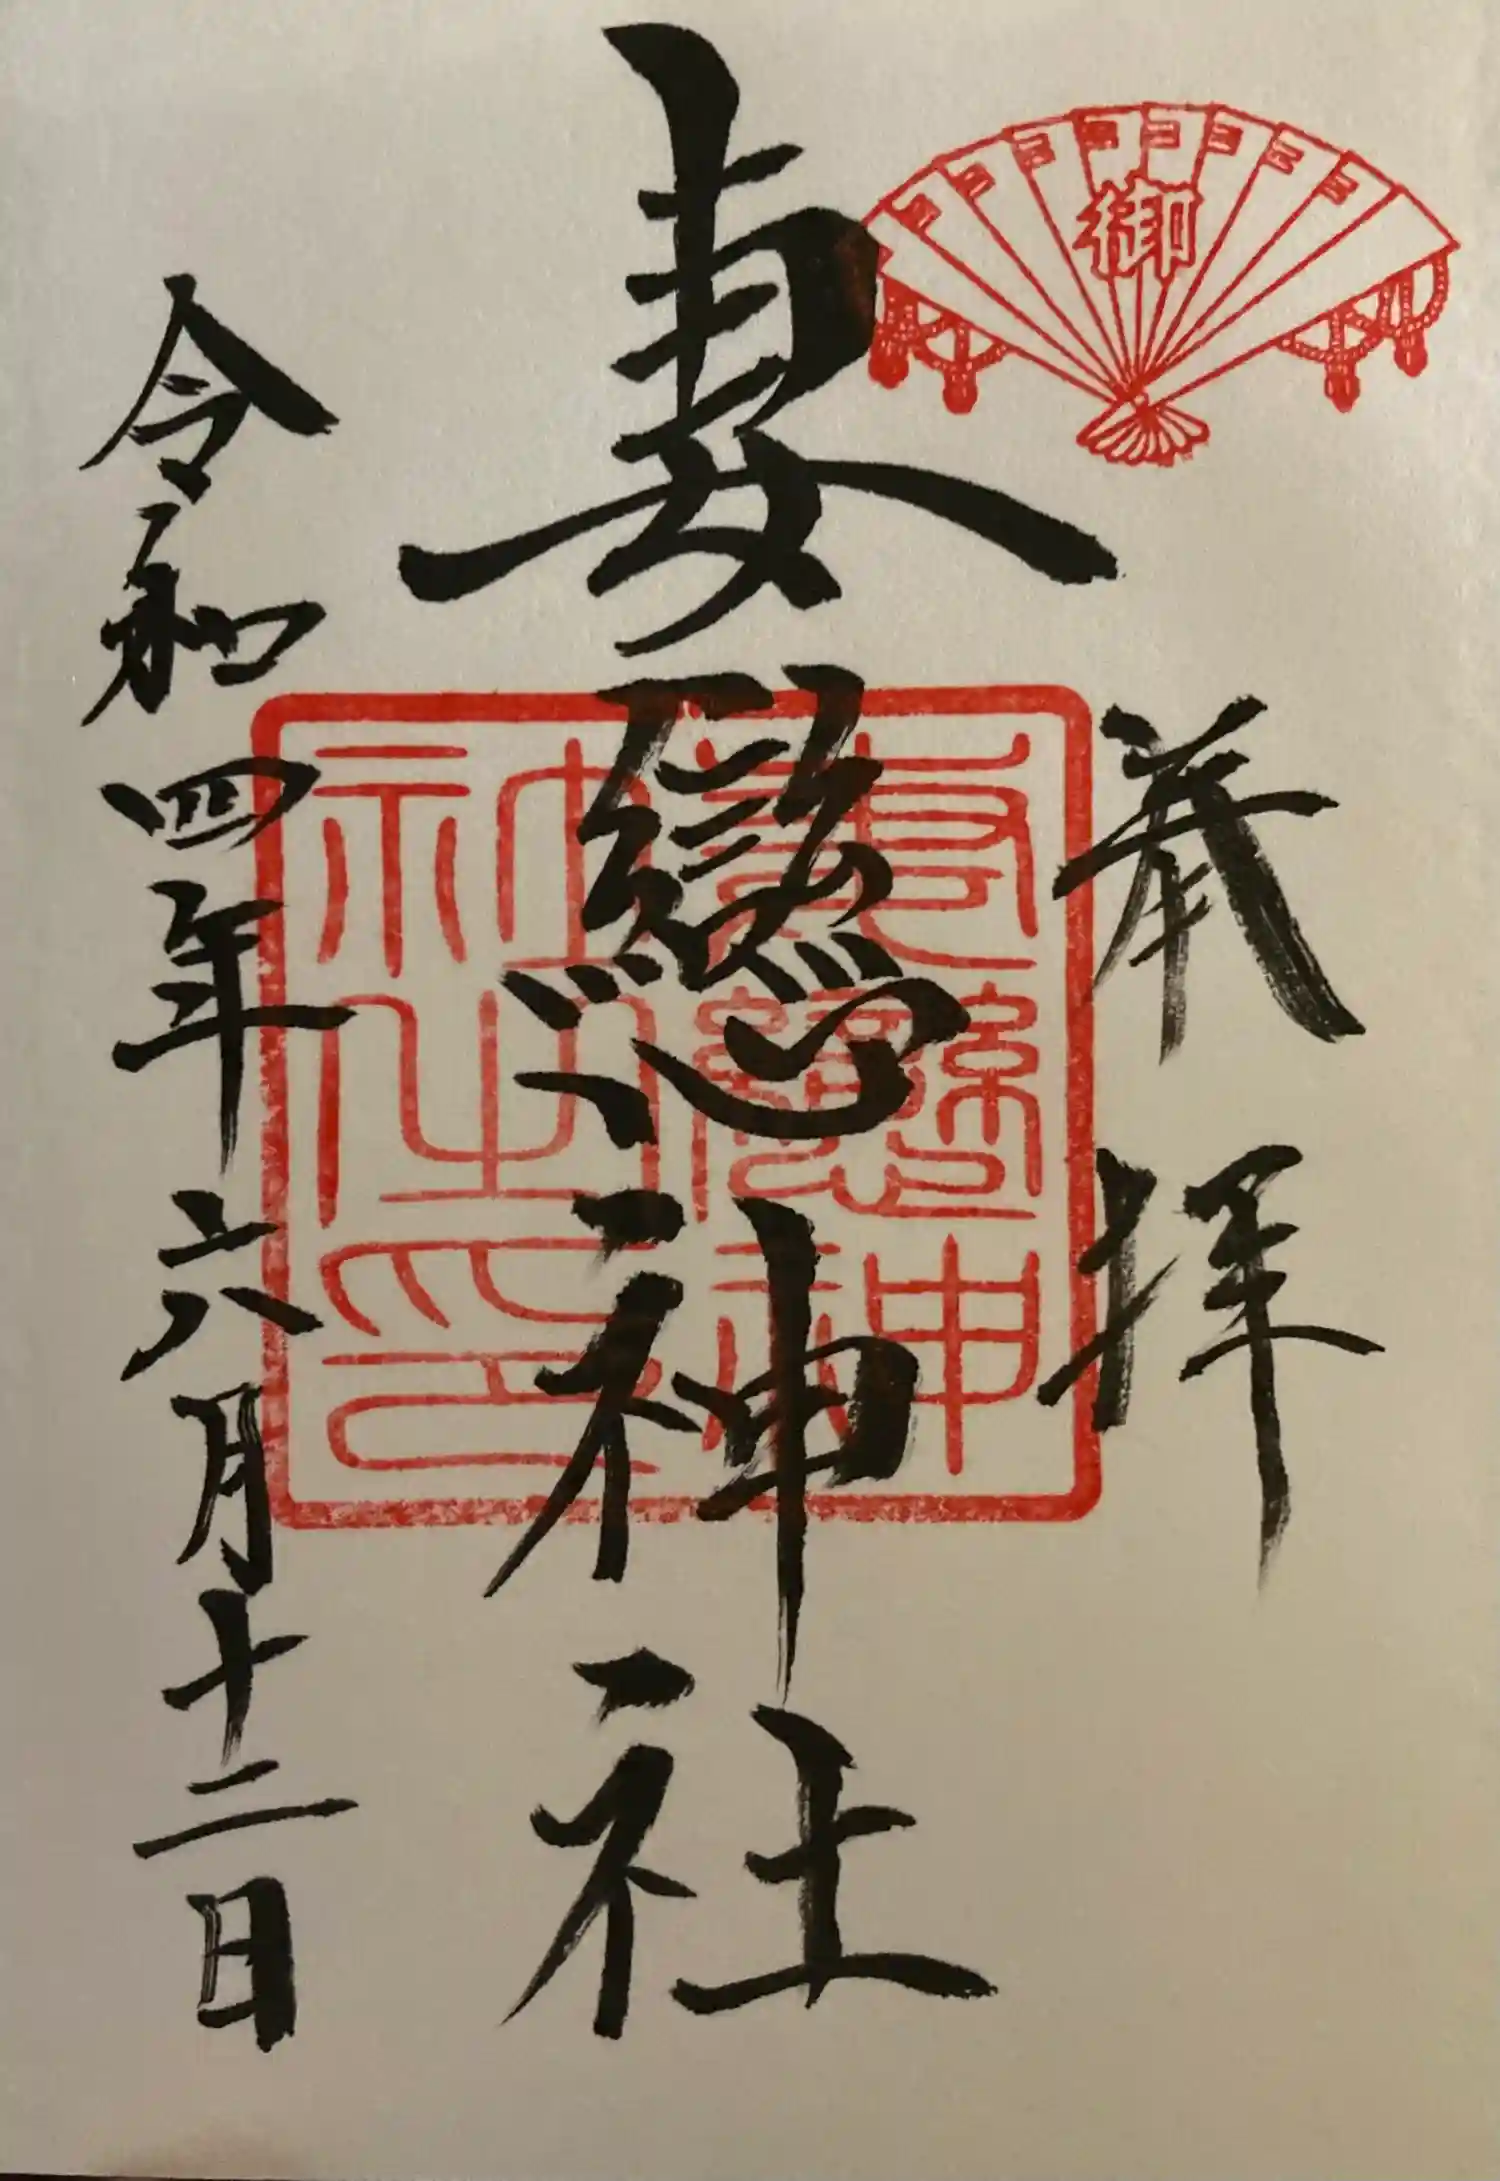 御
奉拝
妻戀神社
妻戀神社之印
令和四年六月十二日